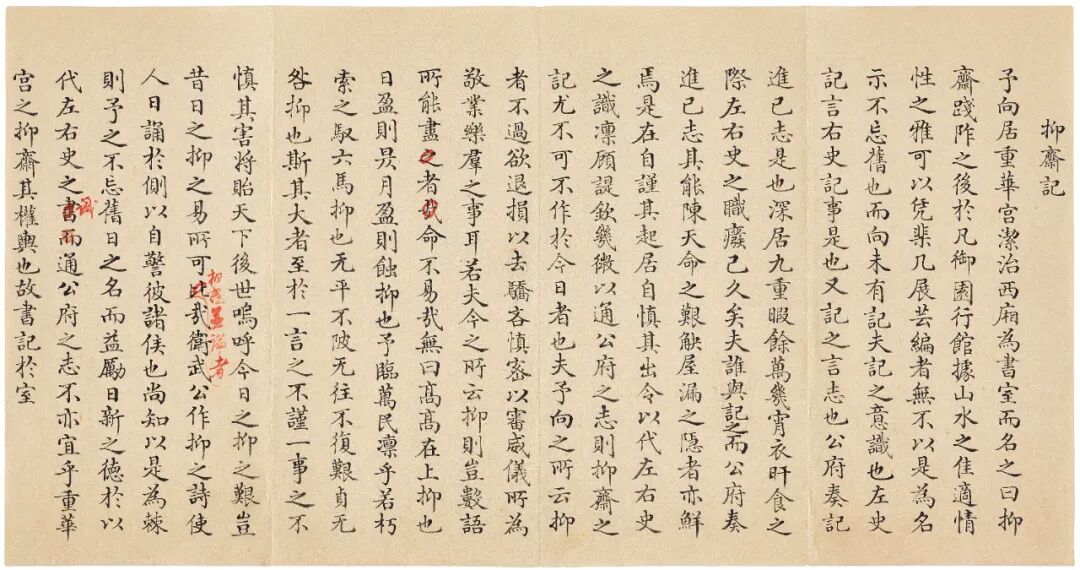 抑齋記
予向居重華宮潔治西廂為書室而名之曰抑
齋踐阼之後於凡御園行館據山水之佳適情
性之雅可以凭棐几展芸編者無不以是為名
示不忘舊也而向未有記夫記之意識也左史
記言右史記事是也又記之言志也公府奏記
進己志是也深居九重暇餘萬幾宵衣旰食之
際左右史之職癈已久矣夫誰與記之而公府奏
進己志其能陳天命之艱觖屋漏之隱者亦鮮
焉是在自謹其起居自慎其出令以代左右史
之識凜顧諟欽幾微以通公府之志則抑齋之
記尤不可不作於今日者也夫予向之所云抑
者不過欲退損以去驕吝慎密以審威儀所為
敬業樂羣之事耳若夫今之所云抑則豈數語
所能盡之者哉命不易哉無曰髙髙在上抑也
日盈則昃月盈則蝕抑也予臨萬民凜乎若朽
索之馭六馬抑也无平不陂无往不復艱貞无
咎抑也斯其大者至於一言之不謹一事之不
慎其害將貽天下後世嗚呼今日之抑之艱豈
昔日之抑之易所可比哉衛武公作抑之詩使
相提並論者
人日誦於側以自警彼諸侯也尚知以是為棘
則予之不忘舊日之名而益勵日新之德於以
代左右史之書而通公府之志不亦宜乎重華
宮之抑齋其權輿也故書記於室